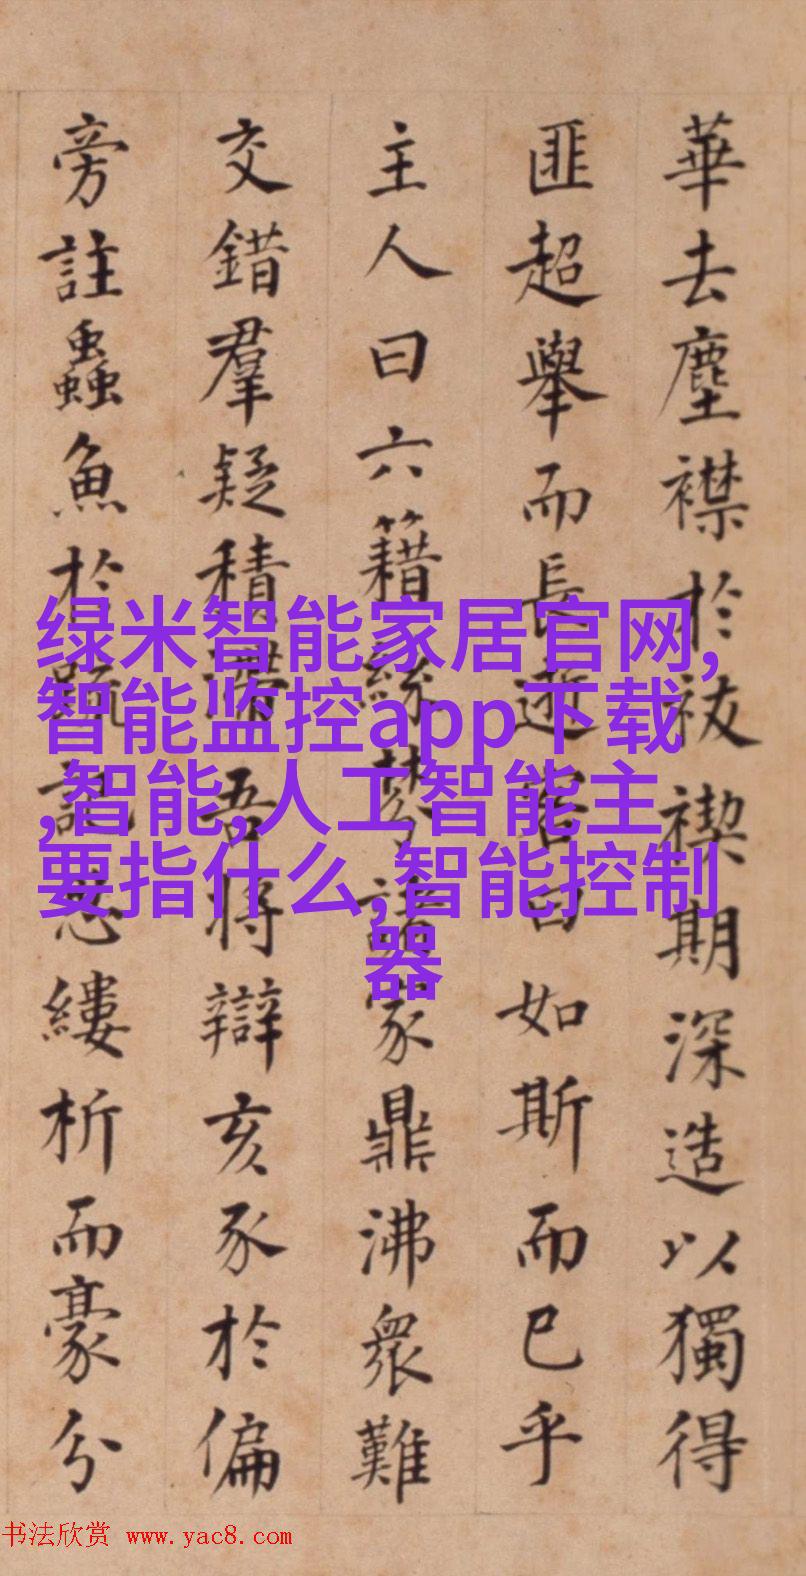 華去塵襟於祓禊期深造以獨得
匪超舉而長客曰如斯而已乎
主人曰六籍絲棼諸家鼎沸衆難
交錯羣疑積滯吾將辯亥豕於偏
旁註蟲魚於疏記縷析而豪分
绿米智能家居官网,
智能监控app下载
,智能,人工智能主
要指什么,智能控制
器
书法欣赏 www.yac8.com